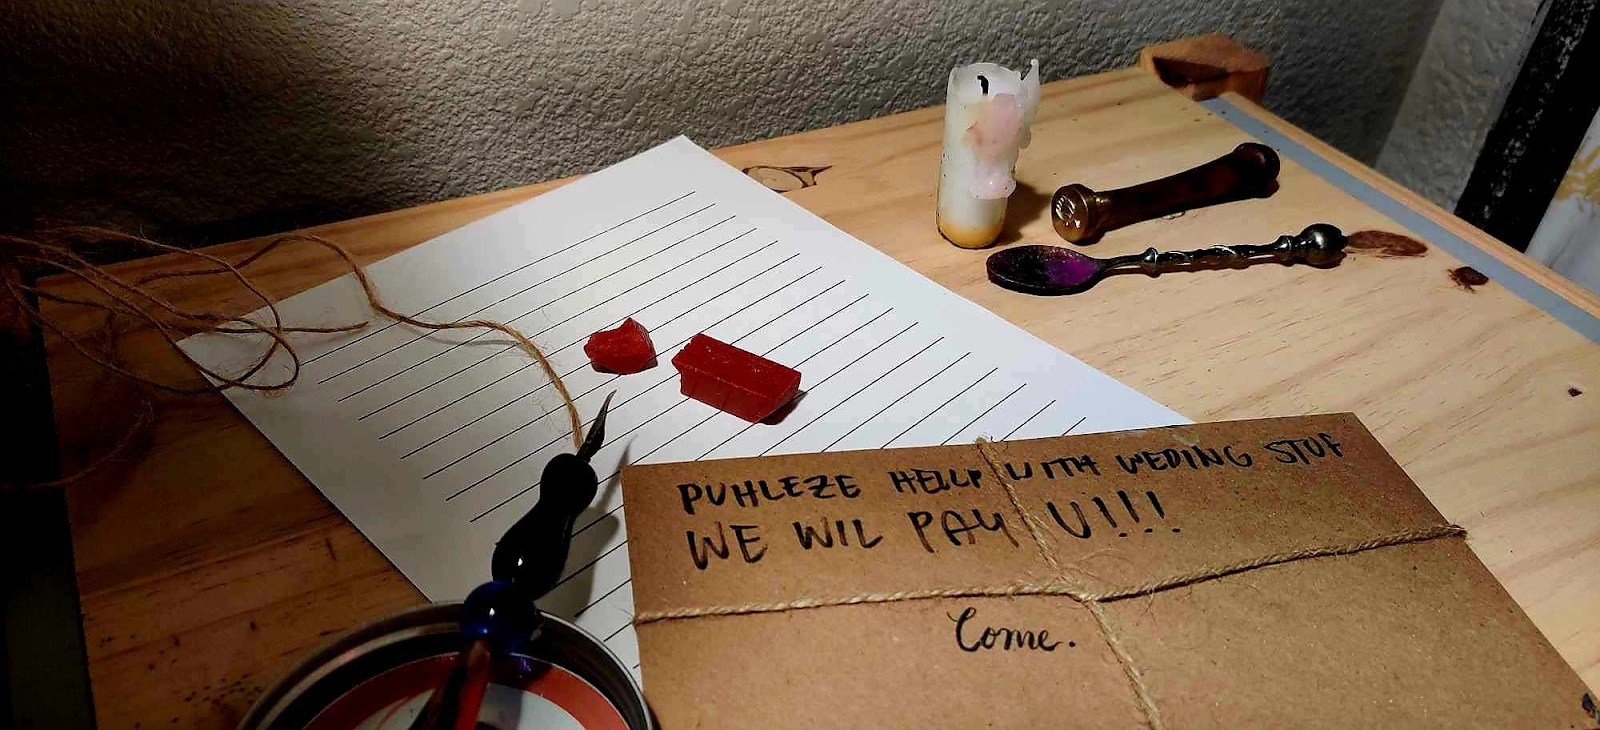 PUHLEZE HELLP WITH WEDING STUF
WE WIL PAY U!!!!
Come.